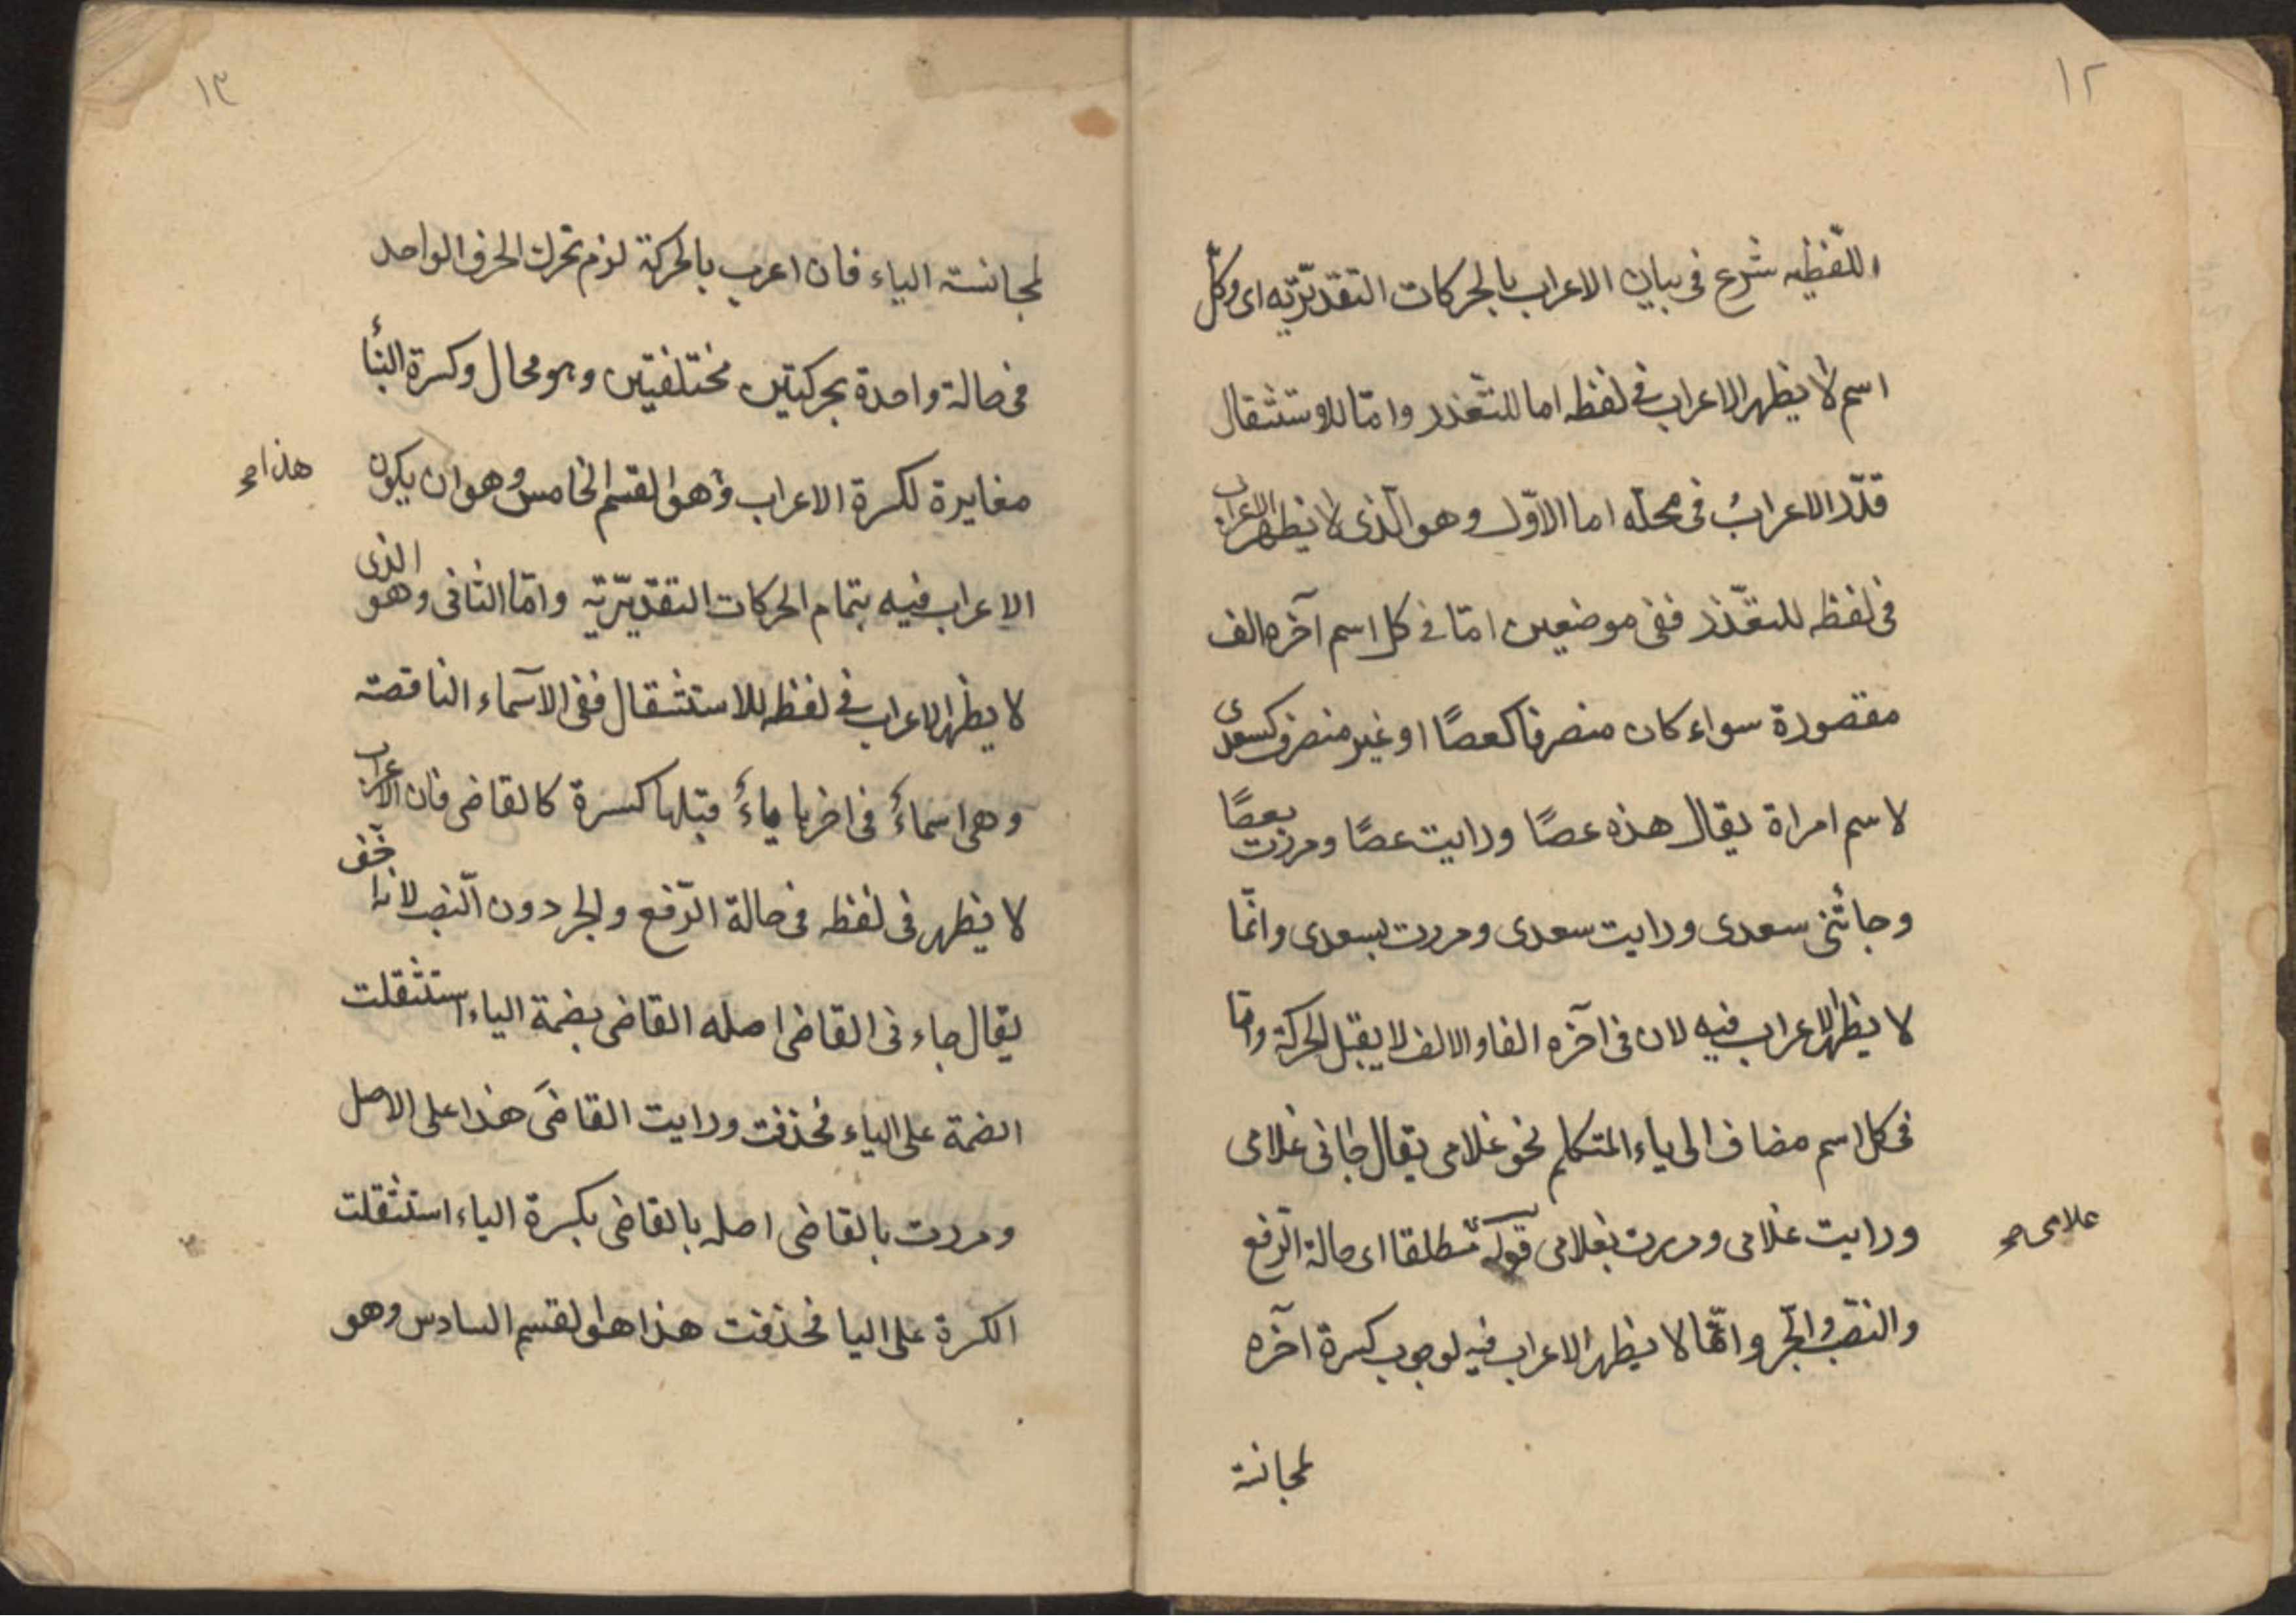 ١٢
اللّفظيه شرع فى بيان الاعراب بالحركات التقديريّه اى وكلّ
اسم لا يظهر الاعراب فى لفظه اما للتعذر وامّا للاستثقال
قدّر الاعرابُ فى محله اما الاوّل وهو الّذى لا يظهر الاعراب
فى لفظه للتعذّر ففى موضعين امّا فى كل اسم آخره الف
مقصورة سواء كان منصرفا كعصًا او غير منصرف كسعدى
لاسم امراة يقال هذه عصًا ورايت عصًا ومررت بعصًا
وجائنى سعدى ورايت سعدى ومررت بسعدى وانّما
لا يظهر الاعراب فيه لان فى آخره الفا والالف لا يقبل الحركة وامّا
فى كل اسم مضاف الى ياء المتكلم نحو غلامى يقال جانى غلامى
ورايت غلامى ومررت بغلامى قوله مطلقا اى حالة الرّفع
غلامى صح
والنصّب والجّر وانّما لا يظهر الاعراب فيه لوجوب كسرة آخره
لمجانسة
١٣
لمجانسة الياء فان اعرب بالحركة لزم تحرك الحرف الواحد
فى حالة واحدة بحركتين مختلفتين وهو محال وكسرة البنأ
مغايرة لكسرة الاعراب وهو القسم الخامس وهو ان يكون
هذا صح
الاعراب فيه بتمام الحركات التقديريّة وامّا الثانى وهو الذى
لا يظهر الاعراب فى لفظه للاستثقال ففى الاسماء الناقصة
وهى اسماءٌ فى اخرها ياءٌ قبلها كسرة كالقاضى فان الاعراب
لا يظهر فى لفظه فى حالة الرّفع والجر دون النّصب لانه اخّف
يقال جاء نى القاضى اصله القاضى بضمة الياء استثقلت
الضمة على الياء فحذفت ورايت القاضىَ هذا على الاصل
ومررت بالقاضى اصله بالقاضى بكسرة الياء استثقلت
الكسرة على اليا فحذفت هذا هو القسم السادس وهو